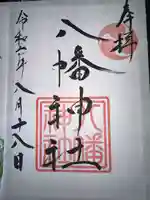 奉拝
八幡神社
令和二年八月十八日